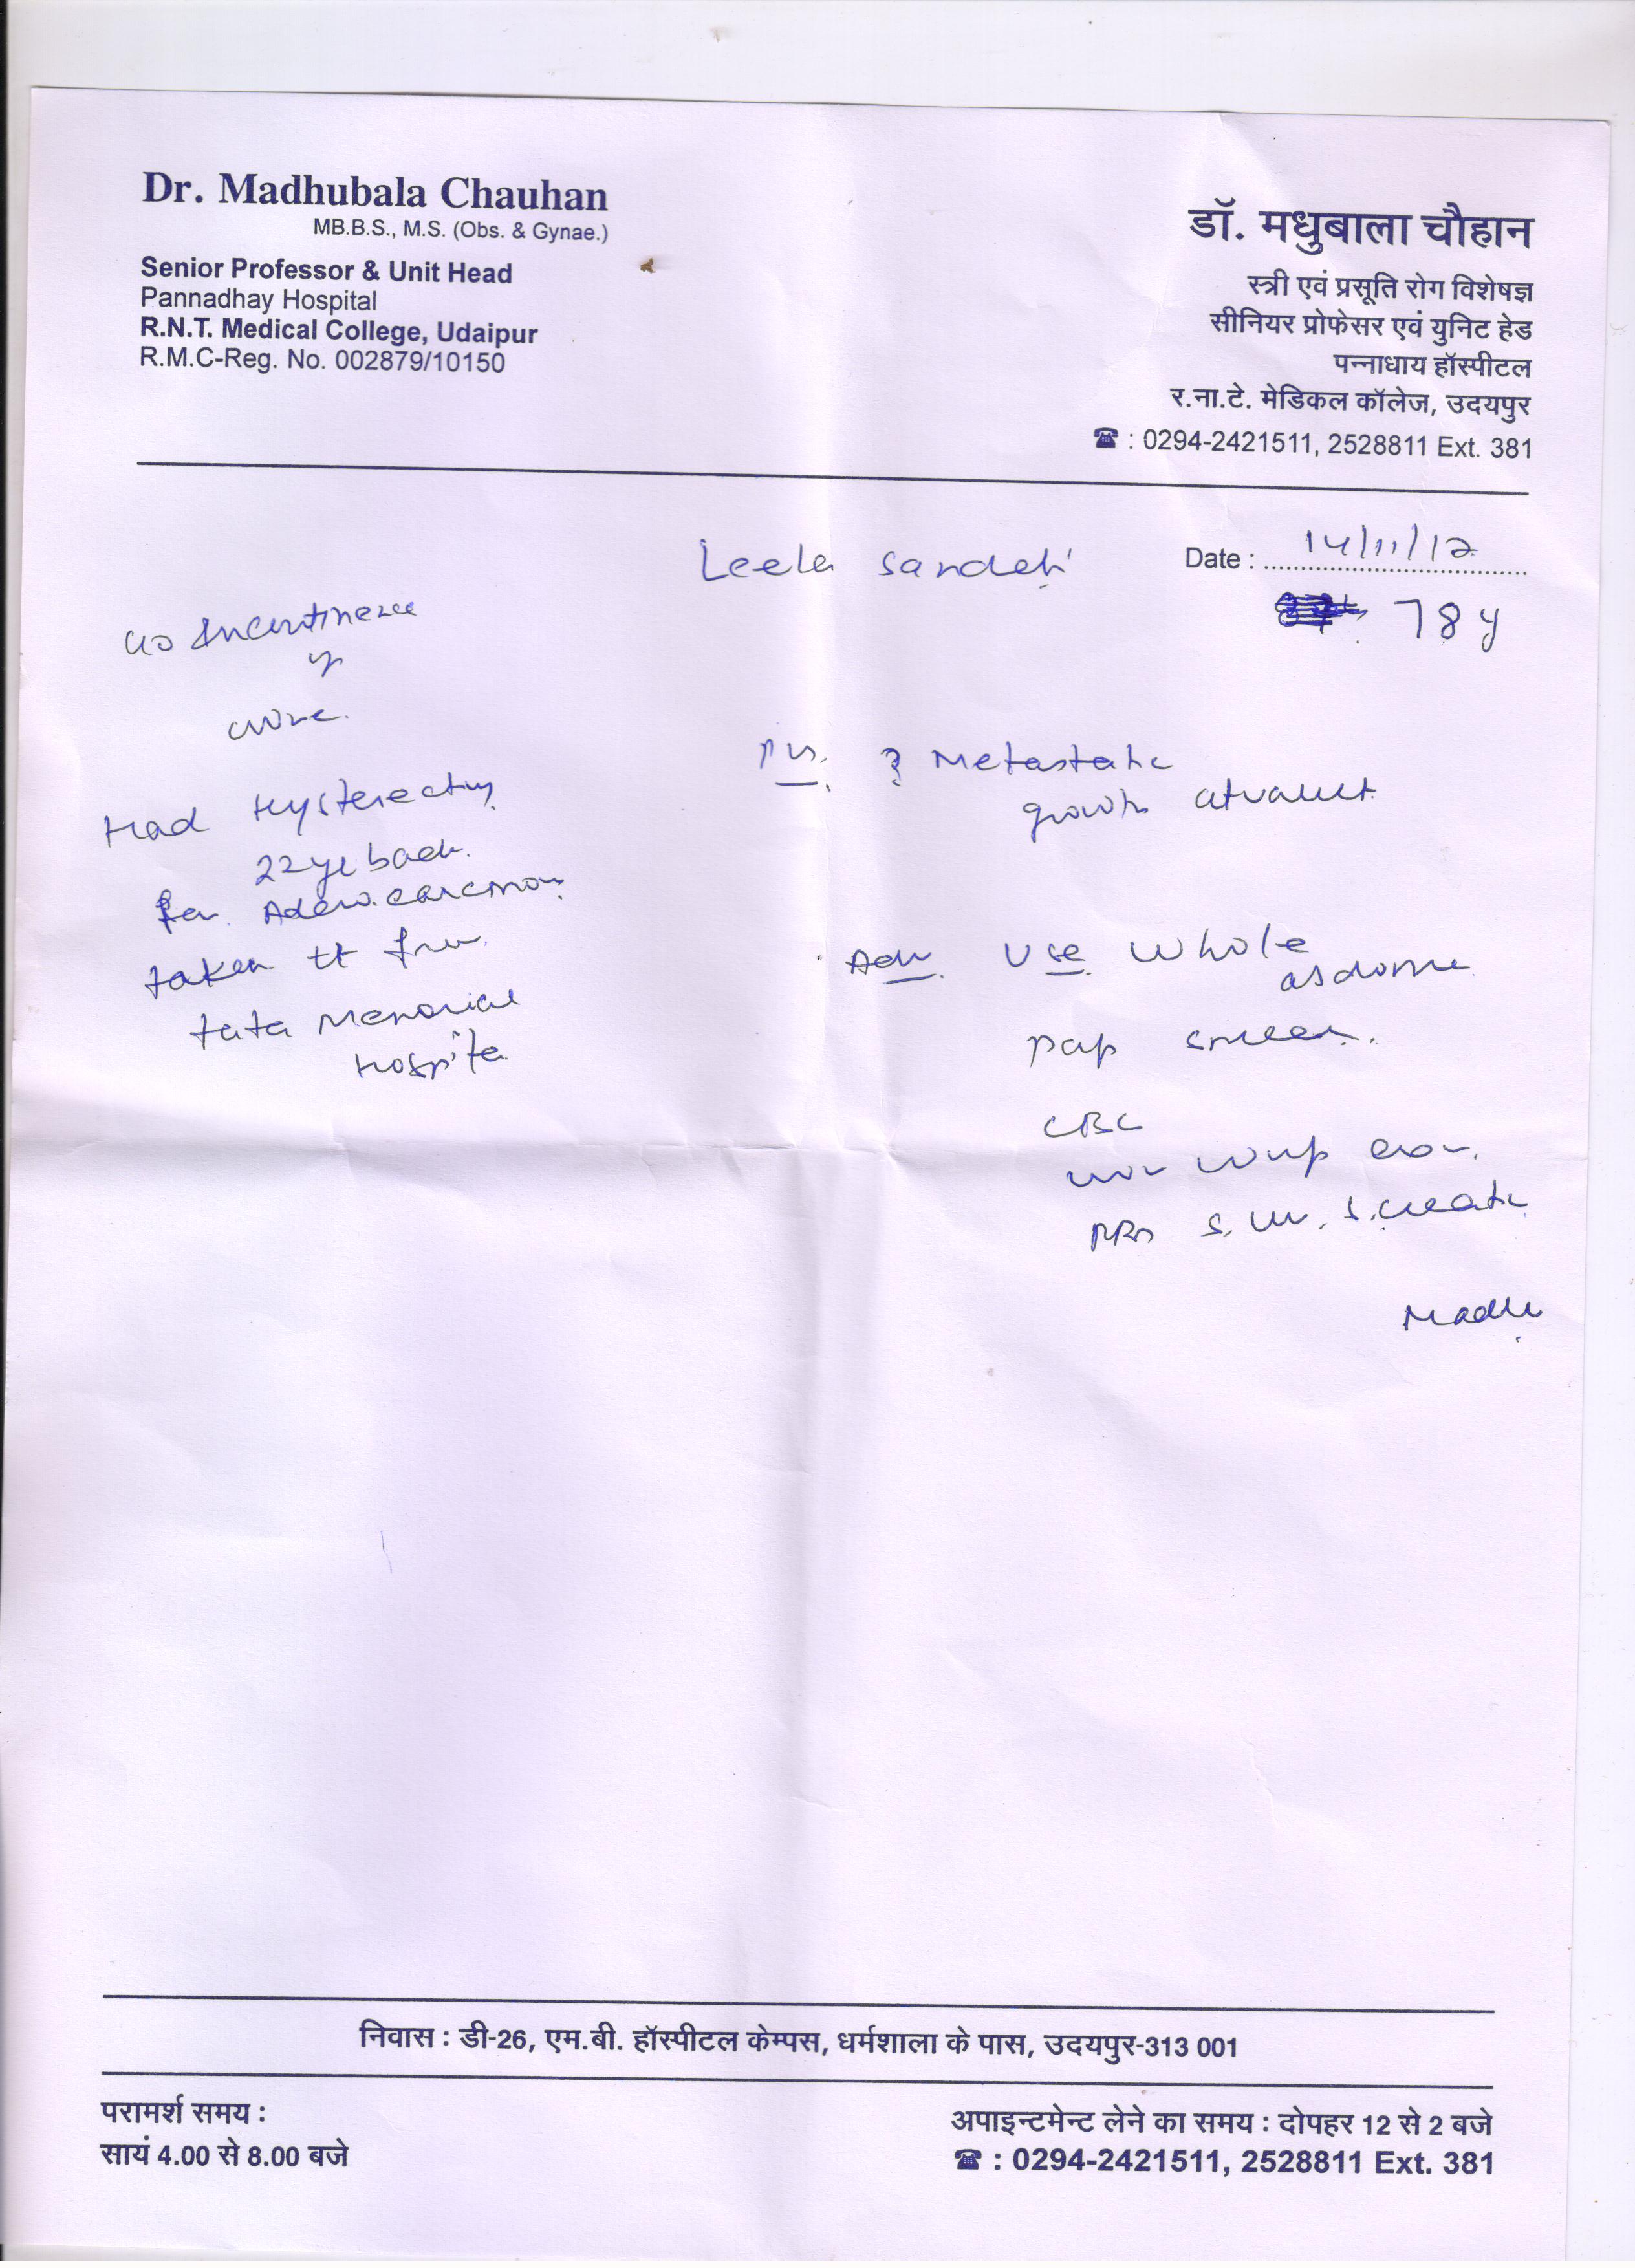 Dr. Madhubala Chauhan
MB.B.S., M.S. (Obs. & Gynae.)
Senior Professor & Unit Head
Pannadhay Hospital
R.N.T. Medical College, Udaipur
R.M.C-Reg. No. 002879/10150
डॉ. मधुबाला चौहान
स्त्री एवं प्रसूति रोग विशेषज्ञ
सीनियर प्रोफेसर एवं युनिट हेड
पन्नाधाय हॉस्पीटल
र.ना.टे. मेडिकल कॉलेज, उदयपुर
☎ : 0294-2421511, 2528811 Ext. 381
Leela
Date : 14/11/12
78 y
c/o Incontinence
of
urine.
Had Hysterectomy
22 yr back.
for Adenocarcinoma
taken tt from
tata Memorial
Hospital
P/V. ? Metastatic
growth at vault
Adv. USG Whole
abdomen
pap smear.
CBC
urine
RBS S. S. creatinine
Madhu
निवास : डी-26, एम.बी. हॉस्पीटल केम्पस, धर्मशाला के पास, उदयपुर-313 001
परामर्श समय :
सायं 4.00 से 8.00 बजे
अपाइन्टमेन्ट लेने का समय : दोपहर 12 से 2 बजे
☎ : 0294-2421511, 2528811 Ext. 381